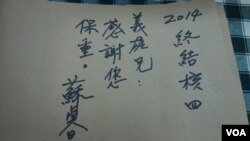 2014
終結核四
義雄兄：
感謝您
保重。
蘇睿
VOA